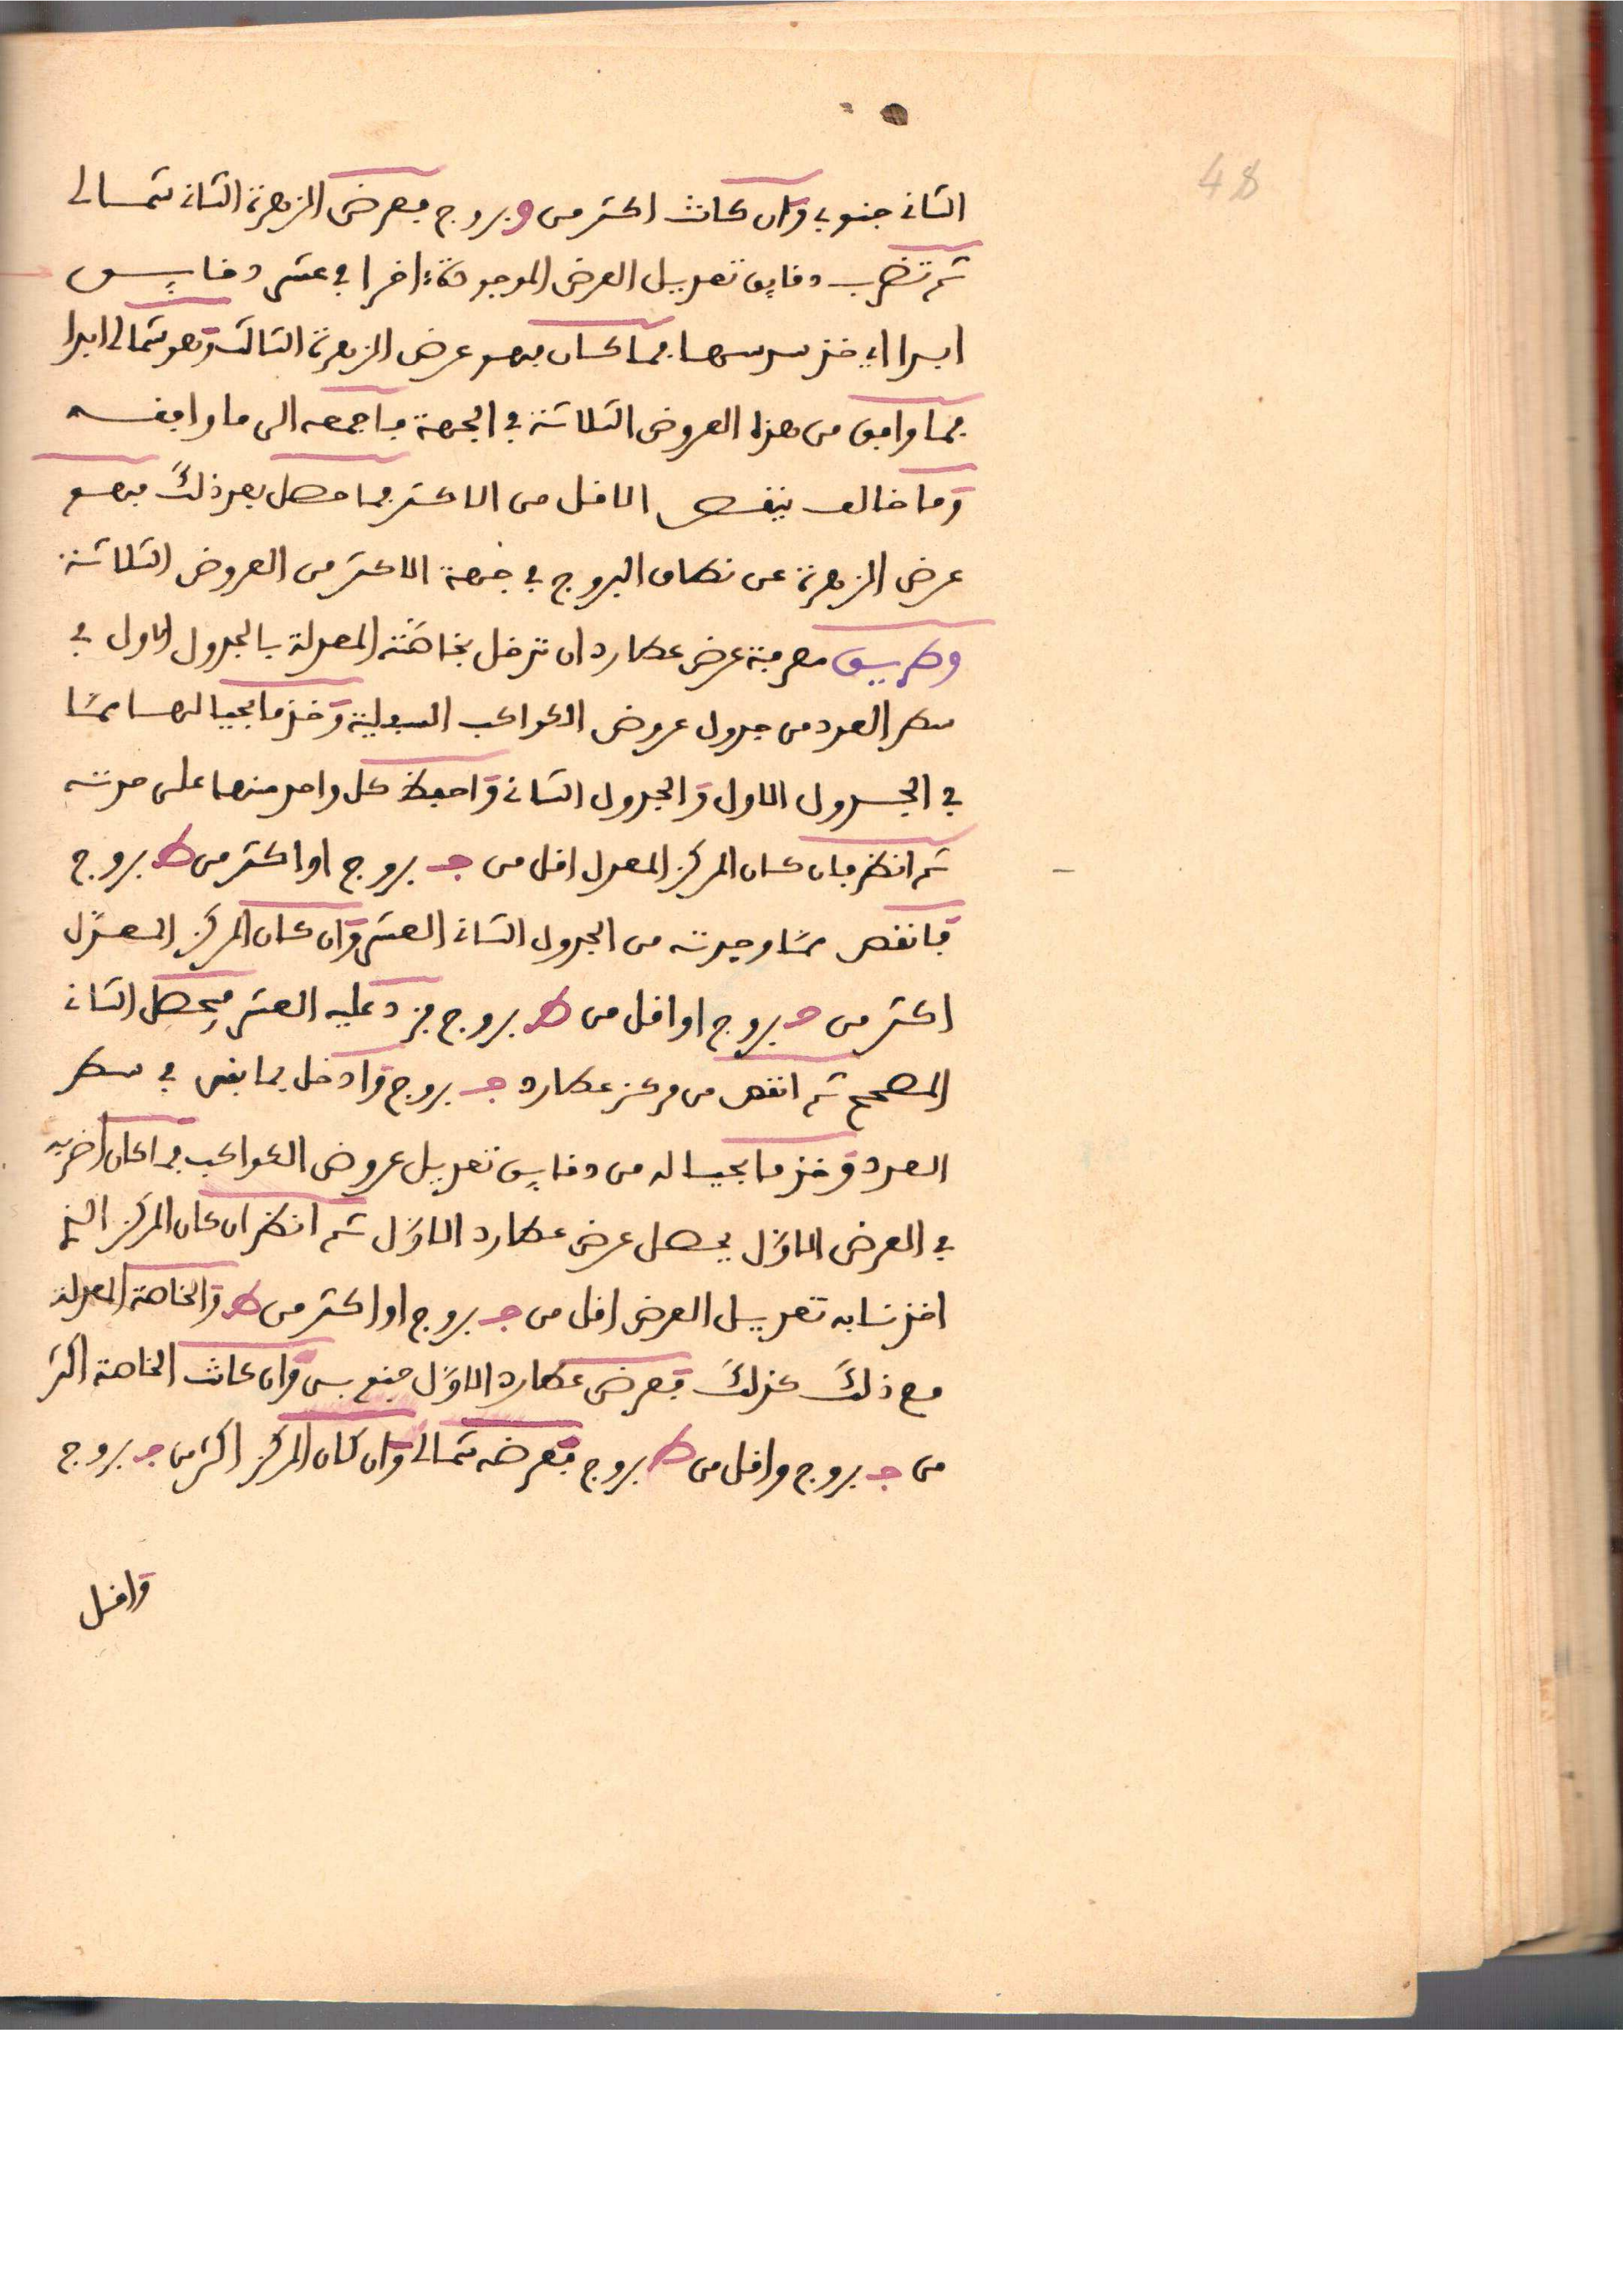 48
الثاني جنوبي وان كانت اكثر من و بروج فعرض الزهرة الثاني شمالي
ثم تضرب دقايق تعديل العرض الموجودة اخرا في عشر دقايق
ابدا اي خذ سدسها فما كان فهو عرض الزهرة الثالث وهو شمالي ابدا
فما وافق من هذا العروض الثلاثة في الجهة فاجمعه الى ما وافقه
وما خالف ينقص الاقل من الاكثر فما حصل بعد ذلك فهو
عرض الزهرة عن نطاق البروج في جهة الاكثر من العروض الثلاثة
وطريق معرفة عرض عطارد ان تدخل بخاصته المعدلة بالجدول الاول في
سطر العدد من جدول عروض الكواكب السفلية وخذ ما بحيالها مما
في الجدول الاول والجدول الثاني واحفظ كل واحد منهما على حدته
ثم انظر فان كان المركز المعدل اقل من جـ بروج او اكثر من ط بروج
فانقص مما وجدته من الجدول الثاني العشر وان كان المركز المعدّل
اكثر من جـ بروج او اقل من ط بروج فزد عليه العشر فيحصل الثاني
المصحح ثم انقص من مركز عطارد جـ بروج وادخل بما بقى في سطر
العدد وخذ ما بحياله من دقايق تعديل عروض الكواكب فما كان اضربه
في العرض الاوّل يحصل عرض عطارد الاوّل ثم انظر ان كان المركز الذي
اخذنا به تعديل العرض اقل من جـ بروج او اكثر من ط والخاصة المعدلة
مع ذلك كذلك فعرض عطارد الاوّل جنوبي وان كانت الخاصة اكثر
من جـ بروج واقل من ط بروج فعرضه شمالي وان كان المركز اكثر من جـ بروج
واقل